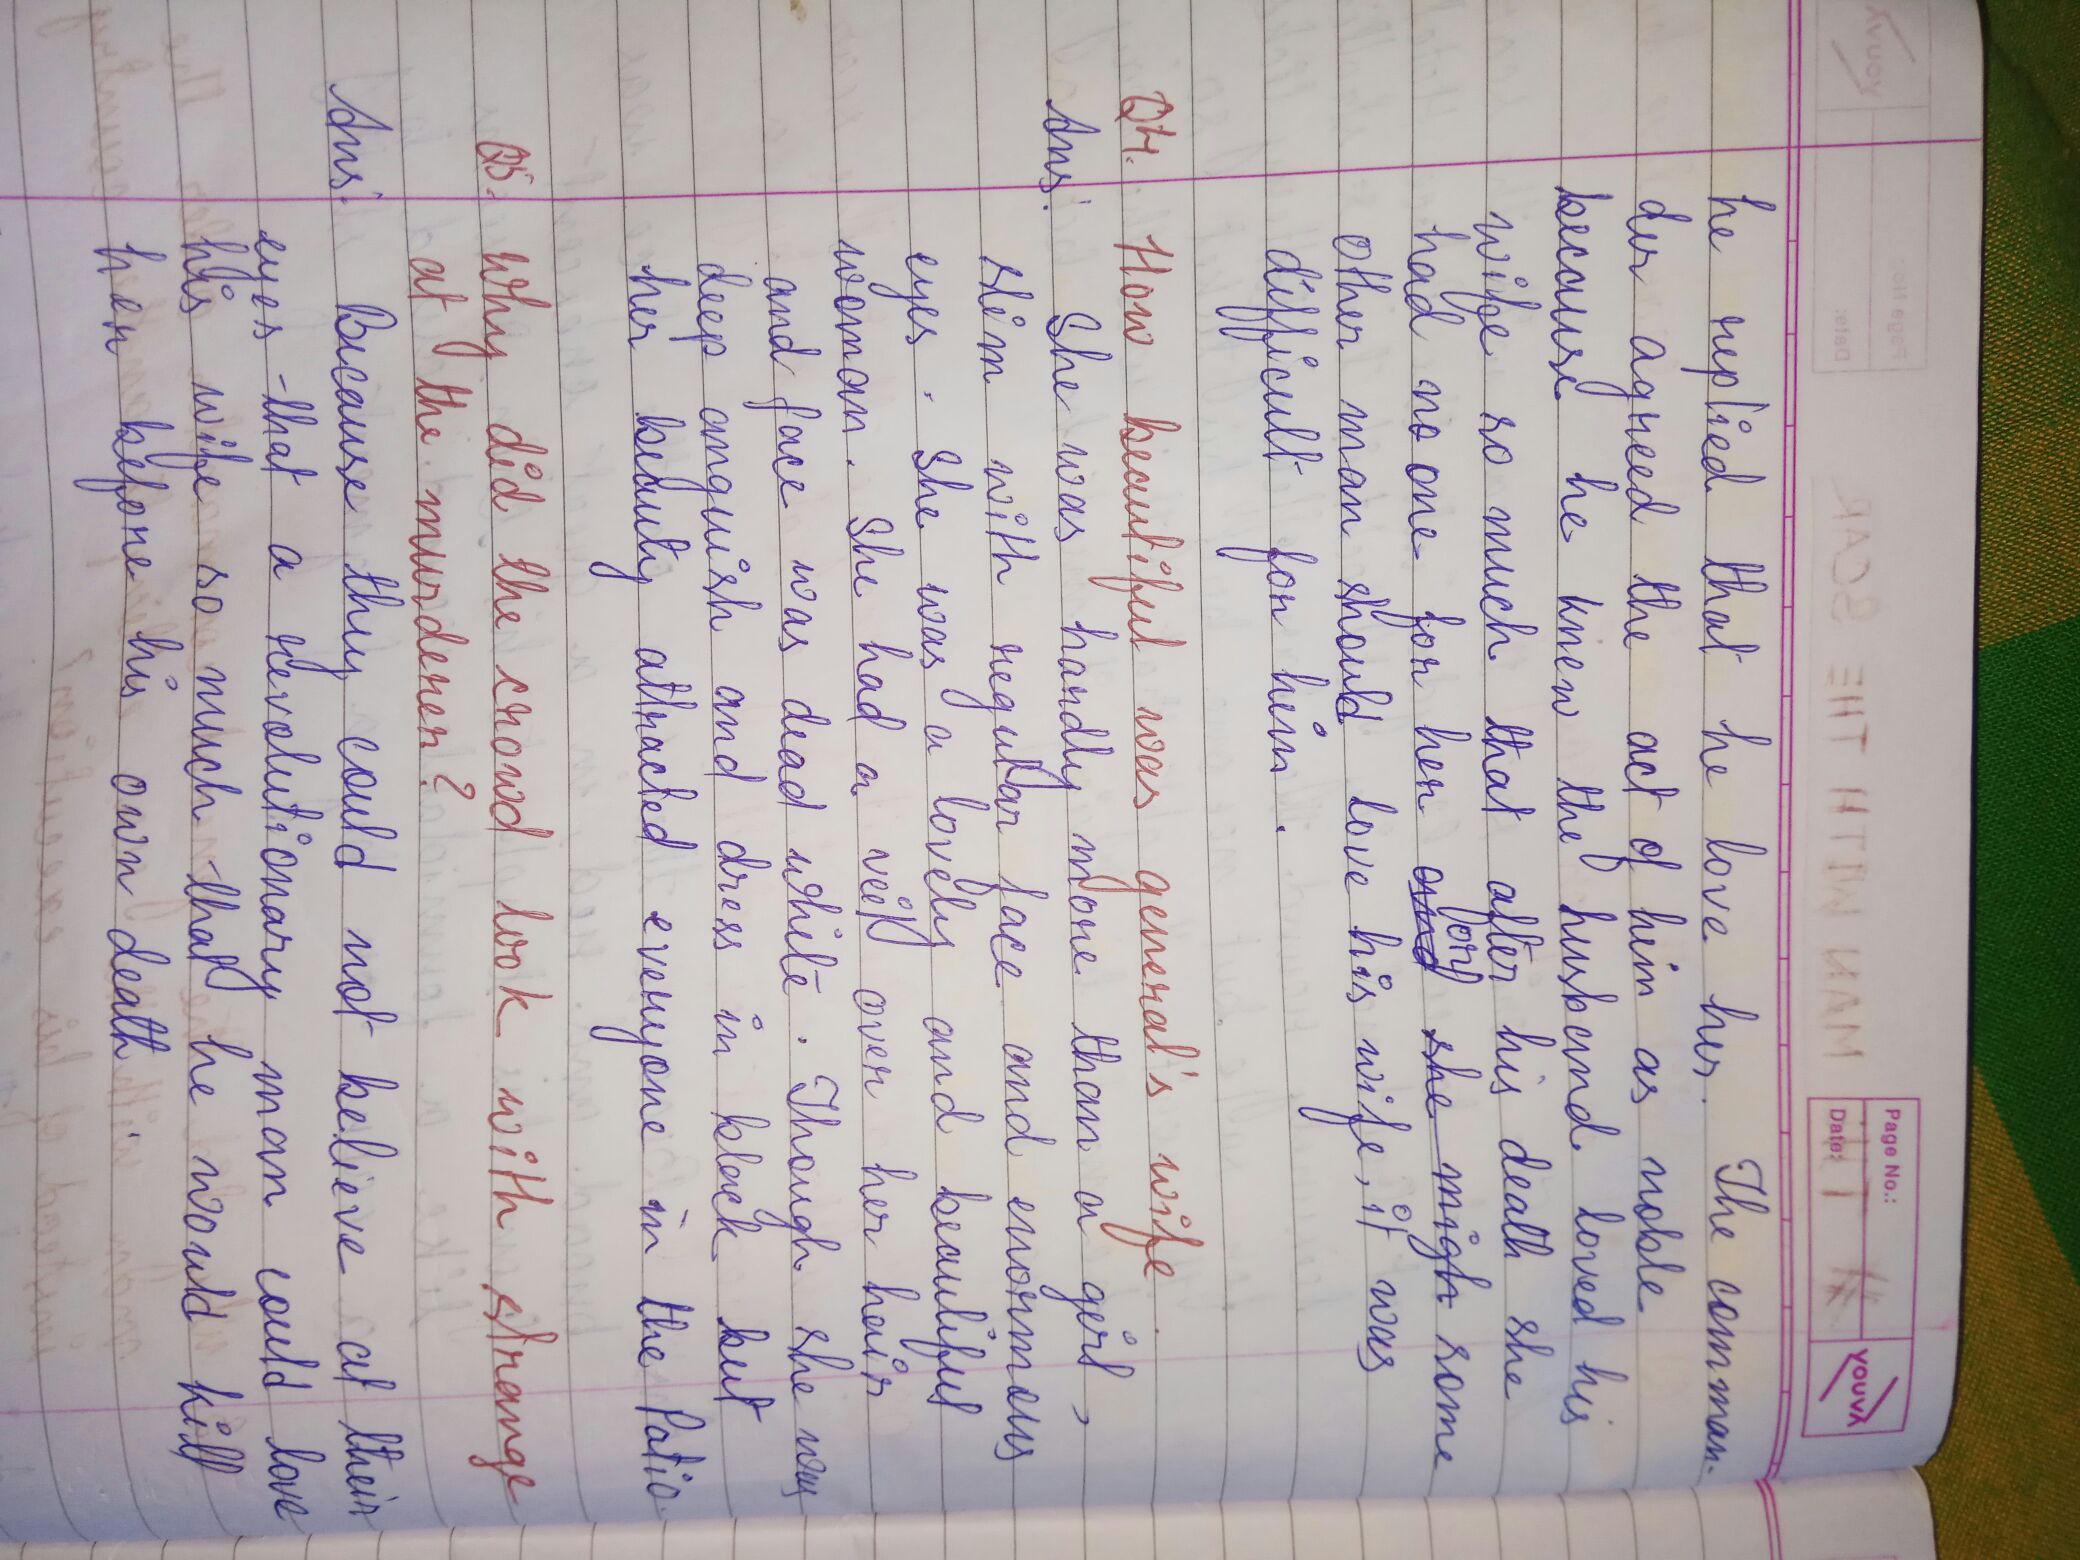 Page No.:
Date:
YOUVA
he replied that he love her. The comman-
der agreed the act of him as noble
because he knew the husband loved his
wife so much that after his death she
had no one for her and for she migh some
other man should love his wife, it was
difficult for him.
Q4. How beautiful was general's wife.
Ans. She was hardly more than a girl,
slim with regular face and enormous
eyes. She was a lovely and beautiful
woman. She had a veil over her hair
and face was dead white. Though she was
deep anguish and dress in black but
her beauty attracted everyone in the Patio
Q5. Why did the crowd look with strange
at the murderer?
Ans. Because they could not believe at their
eyes that a revolutionary man could love
his wife so much that he would kill
her before his own death